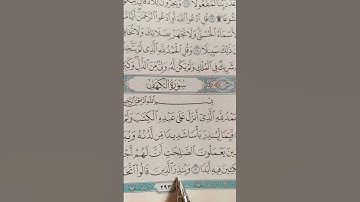 رَبِّنَا لَمَفْعُولًا ۝ وَيَخِرُّونَ لِلْأَذْقَانِ
قُلِ ادْعُوا اللَّهَ أَوِ ادْعُوا الرَّحْمَٰنَ أَيًّا
الْأَسْمَاءُ الْحُسْنَىٰ وَلَا تَجْهَرْ بِصَلَاتِكَ وَلَا تُخَافِتْ
ذَٰلِكَ سَبِيلًا ۝ وَقُلِ الْحَمْدُ لِلَّهِ الَّذِي لَمْ
شَرِيكٌ فِي الْمُلْكِ وَلَمْ يَكُنْ لَهُ وَلِيٌّ مِنَ الذُّلِّ وَكَبِّرْهُ
سُورَةُ الْكَهْفِ
بِسْمِ اللَّهِ الرَّحْمَٰنِ الرَّحِيمِ
الْحَمْدُ لِلَّهِ الَّذِي أَنْزَلَ عَلَىٰ عَبْدِهِ الْكِتَابَ وَلَمْ
قَيِّمًا لِيُنْذِرَ بَأْسًا شَدِيدًا مِنْ لَدُنْهُ وَيُبَشِّرَ
الَّذِينَ يَعْمَلُونَ الصَّالِحَاتِ أَنَّ لَهُمْ أَجْرًا
مَاكِثِينَ فِيهِ أَبَدًا ۝ وَيُنْذِرَ الَّذِينَ قَالُوا اتَّخَذَ
٢٩٣